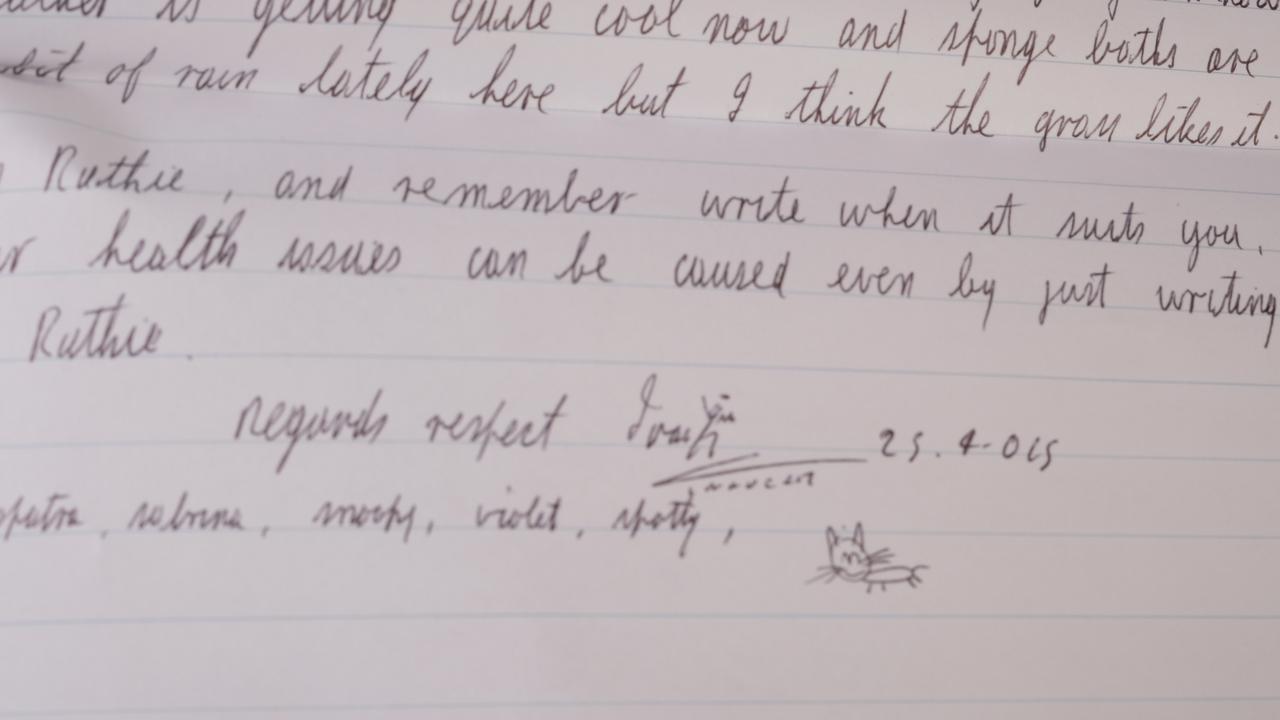 is getting quite cool now and sponge baths are
bit of rain lately here but I think the grass likes it.
Ruthie, and remember write when it suits you.
health issues can be caused even by just writing
Ruthie.
Regards respect Ivan 25.4-015
innocent
sabrina, smoky, violet, spotty,